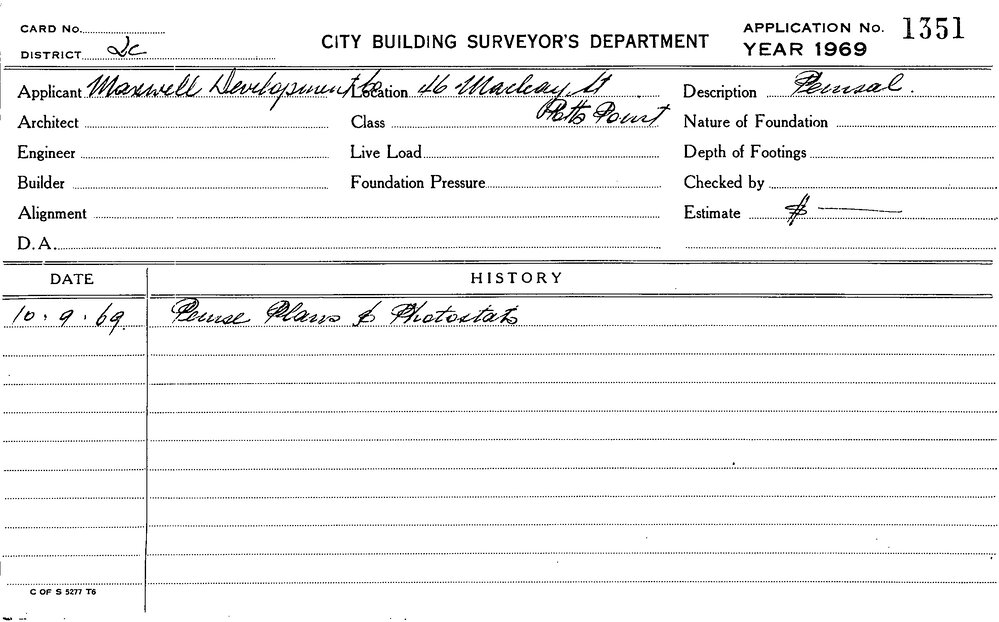 CARD No.
DISTRICT 2c
CITY BUILDING SURVEYOR'S DEPARTMENT
APPLICATION No. 1351
YEAR 1969
Applicant Maxwell Development Co Location 46 Macleay St Potts Point Description Perusal.
Architect Class Nature of Foundation
Engineer Live Load Depth of Footings
Builder Foundation Pressure Checked by
Alignment Estimate $ —
D.A.
DATE HISTORY
10.9.69 Peruse Plans & Photostats
C OF S 5277 T6